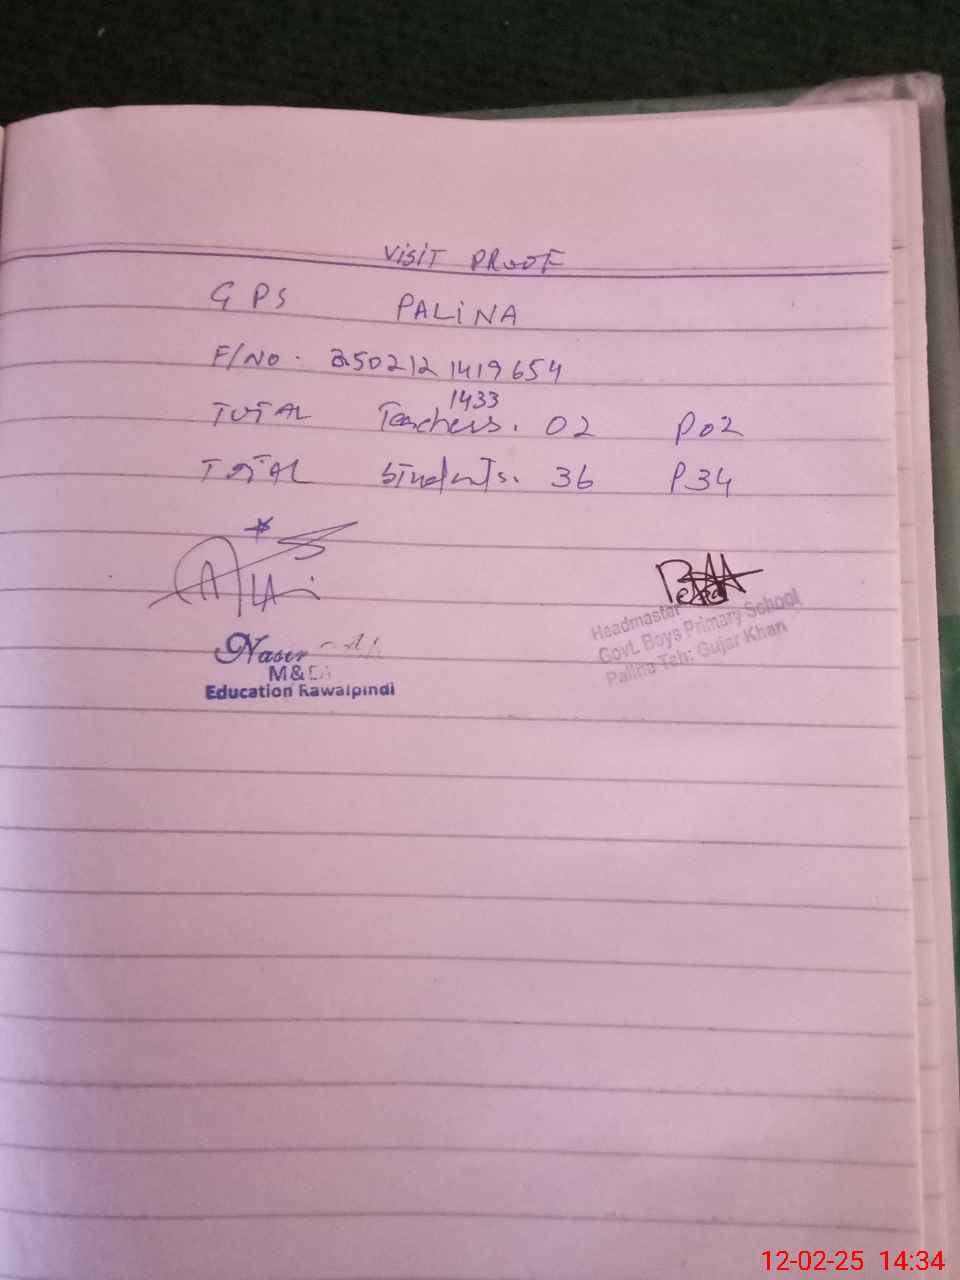 VISIT PROOF
GPS PALINA
F/NO. 350212 1419654
1433
TOTAL Teachers. 02 P02
TOTAL Students. 36 P34
Naser
M&EA
Education Rawalpindi
Headmaster
Govt. Boys Primary School
Palina Teh: Gujar Khan
12-02-25 14:34